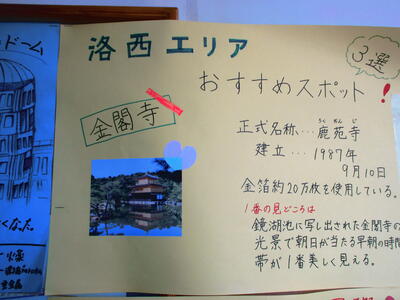 ドーム
洛西エリア
3選
おすすめスポット!
金閣寺
正式名称…鹿苑寺
ろくおんじ
建立…1987年
9月10日
金箔約20万枚を使用している。
1番の見どころは
鏡湖池に写し出された金閣寺の
光景で朝日が当たる早朝の時間
帯が1番美しく見える。